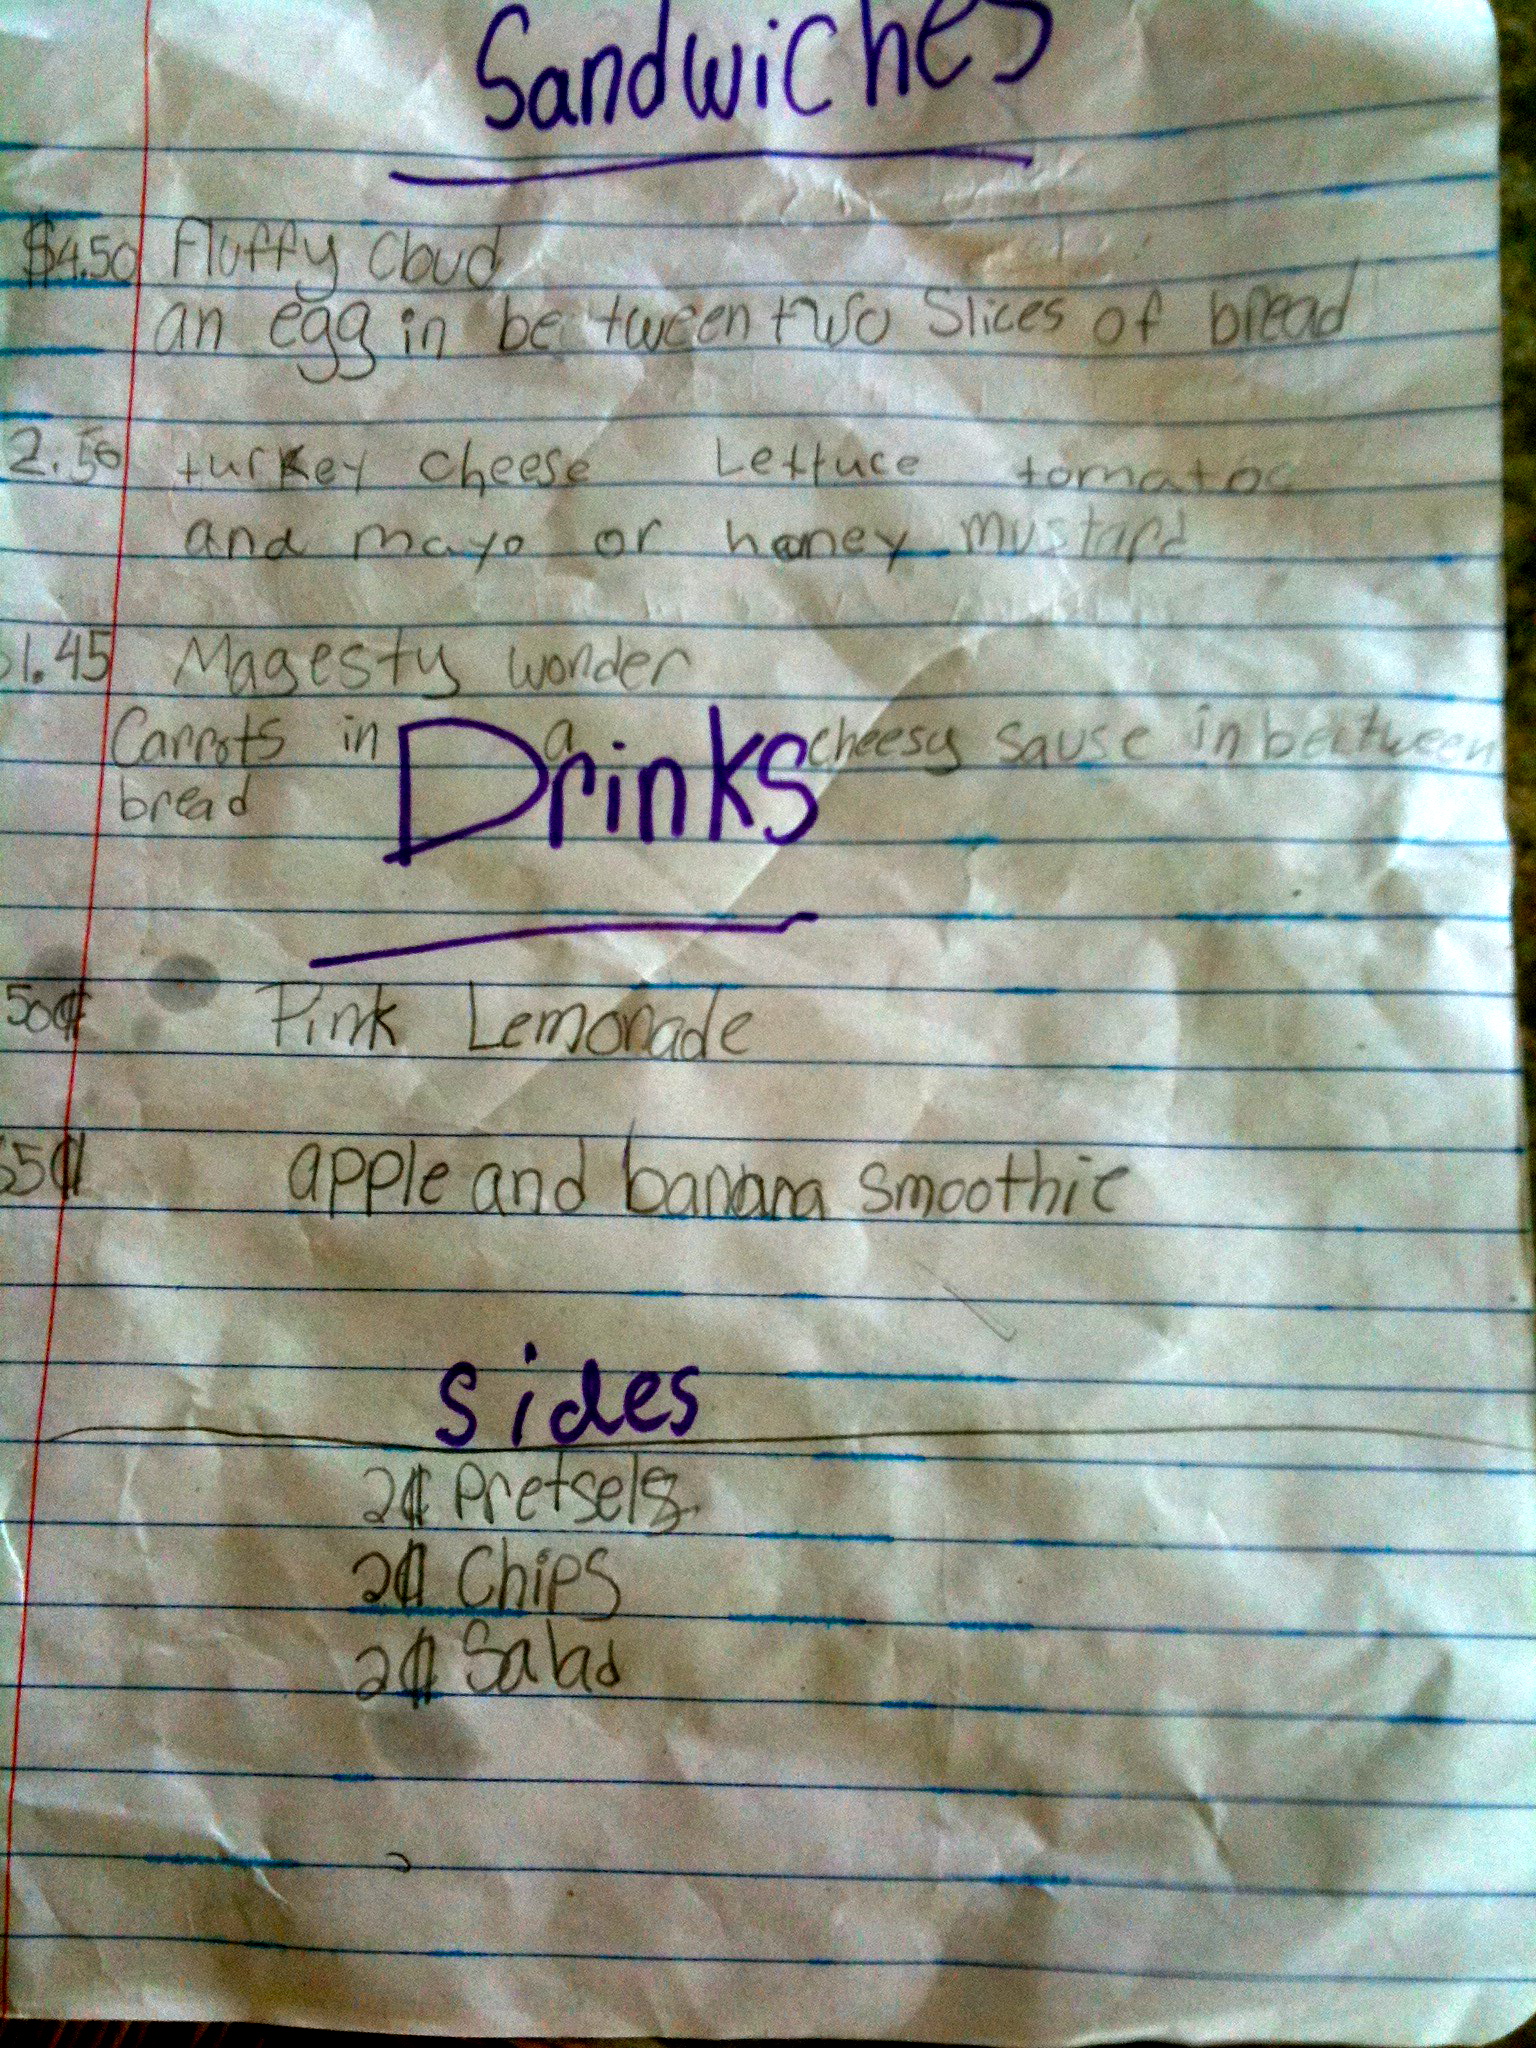 Sandwiches
$4.50 Fluffy Cloud
an egg in be tween two Slices of bread
2.50 turkey cheese Lettuce tomatoe
and mayo or honey mustard
1.45 Magesty wonder
Carrots in a cheesy sause in beetween
bread
Drinks
50¢ Pink Lemonade
5¢ apple and banana smoothie
sides
2¢ Pretsels
2¢ Chips
2¢ Salad